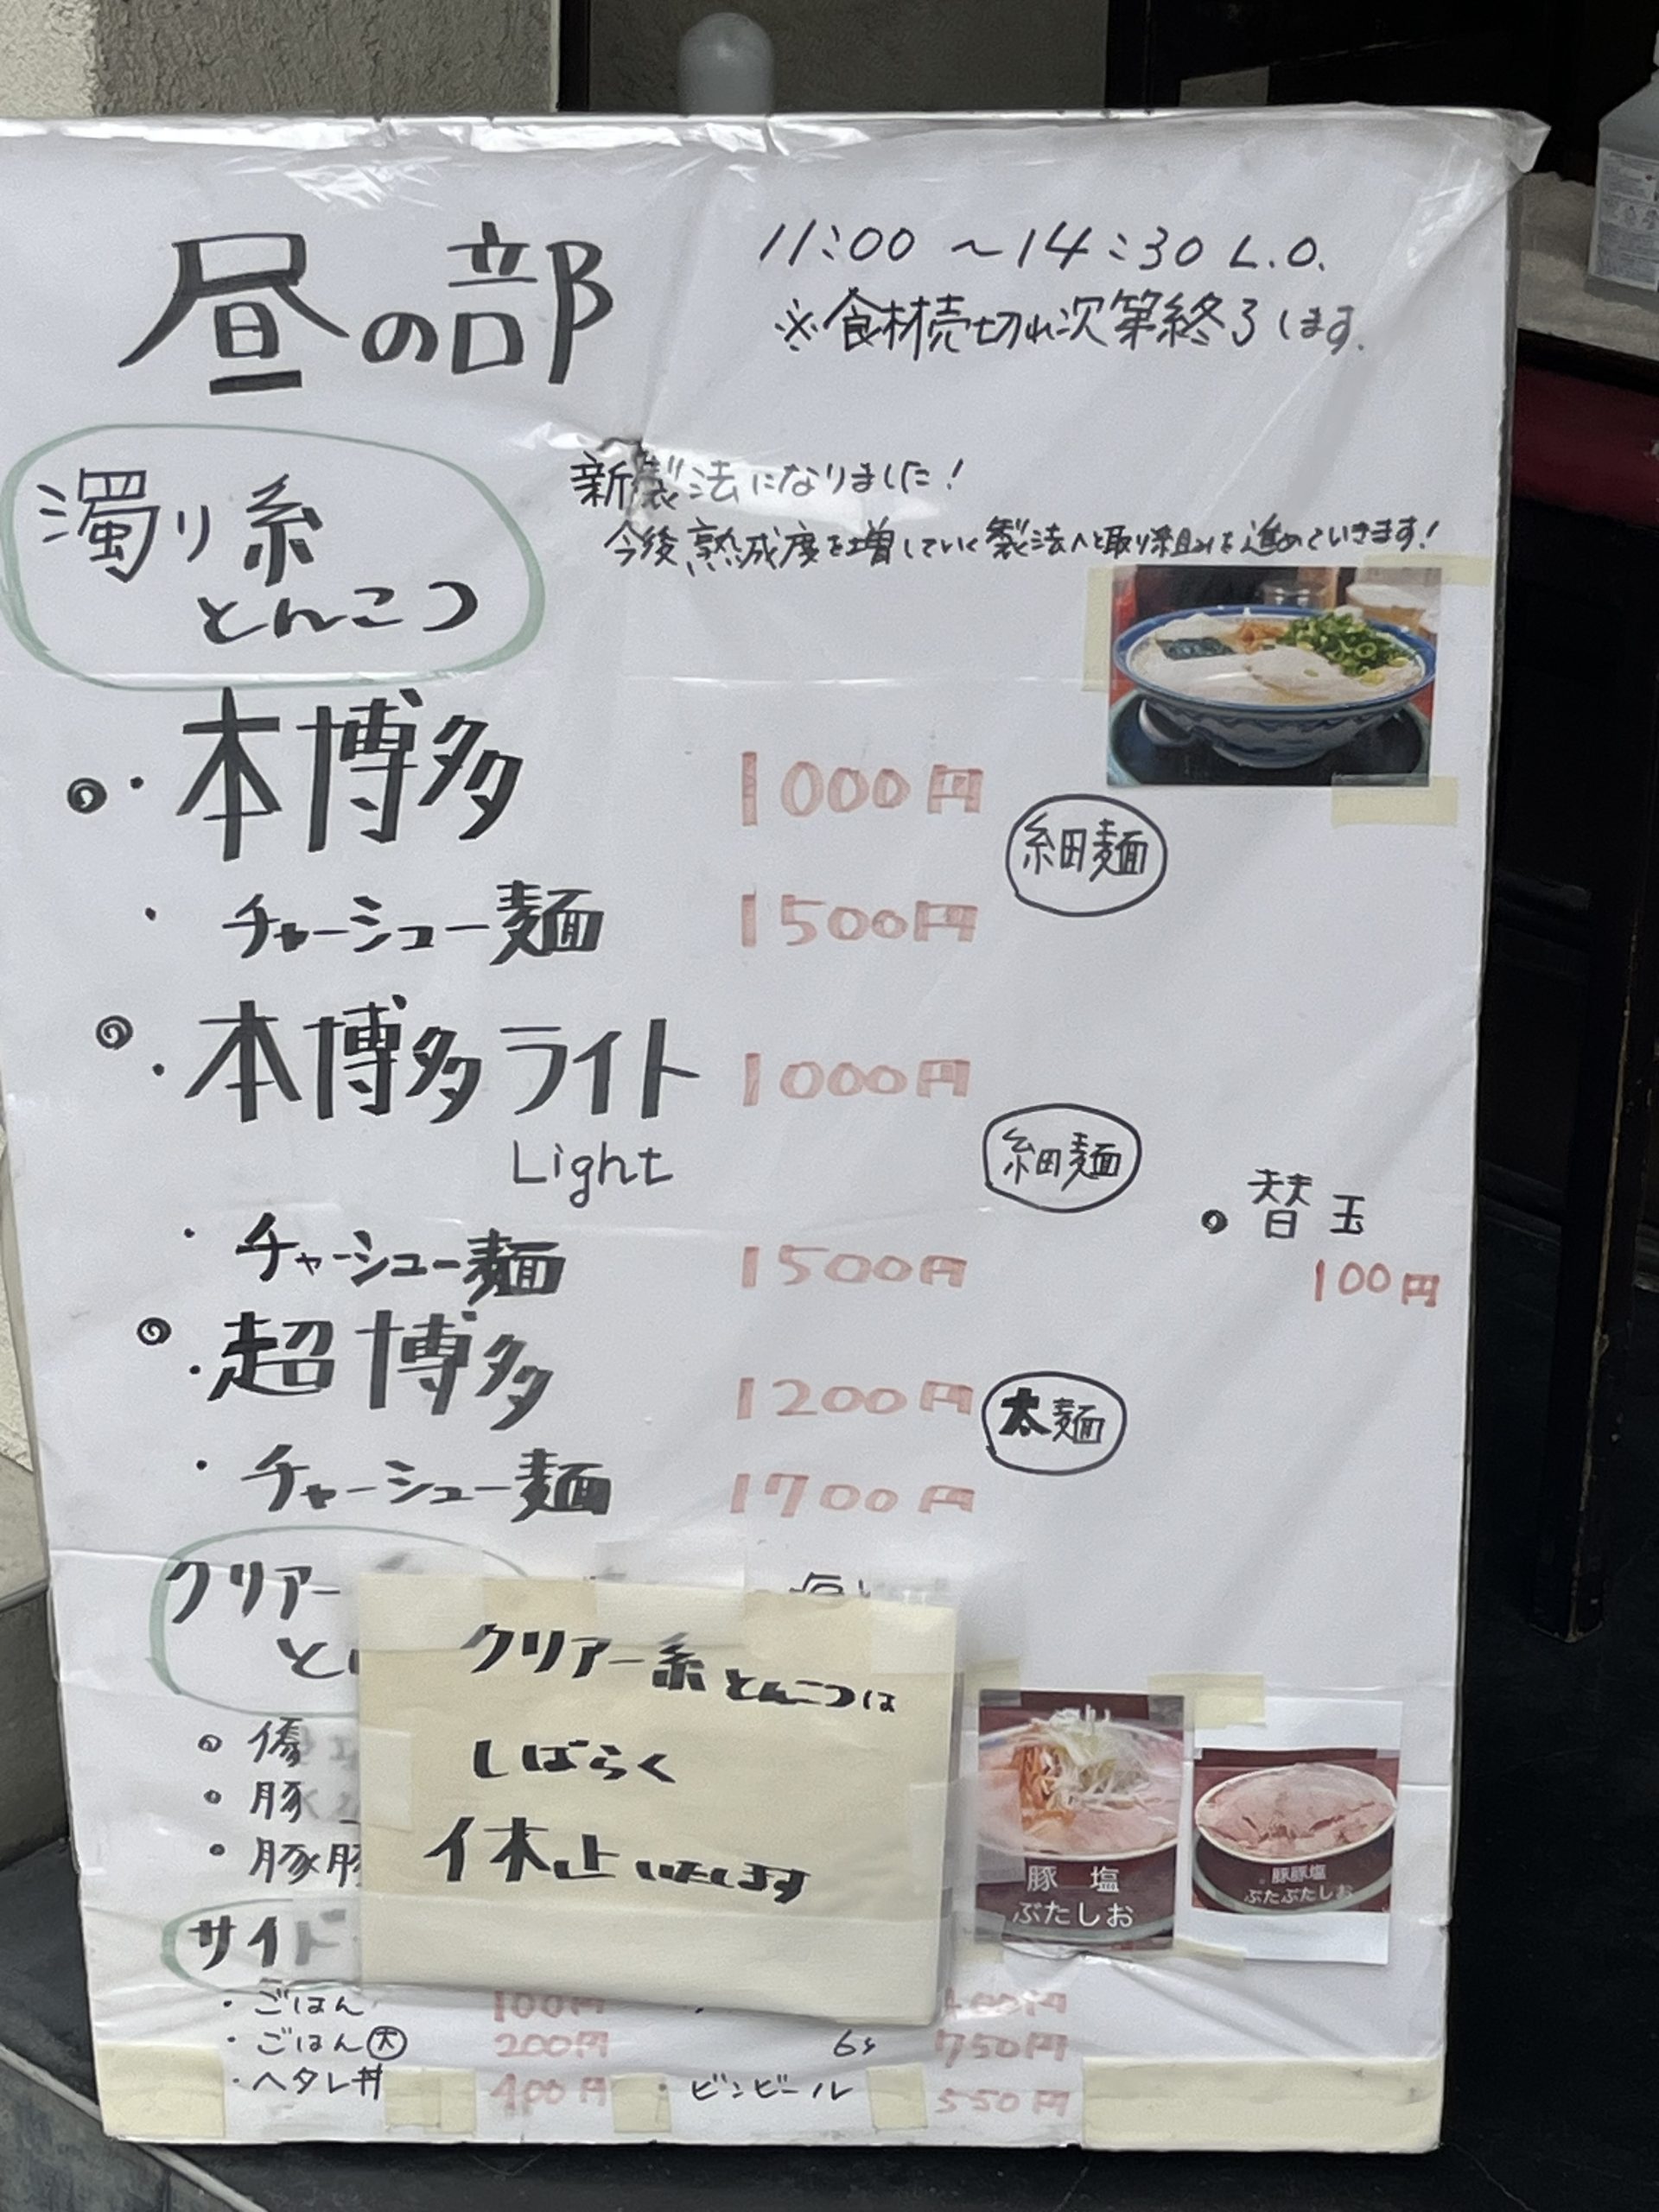 昼の部
11:00 ~14:30 L.O.
※食材売切れ次第終了します.
濁り系
とんこつ
新製法になりました!
今後熟成度を増していく製法へと取り組みを進めていきます!
本博多 1000円
細麺
チャーシュー麺 1500円
本博多ライト 1000円
Light
細麺
替玉
100円
チャーシュー麺 1500円
超博多 1200円
太麺
チャーシュー麺 1700円
クリアー
クリアー系とんこつは
しばらく
休止いたします
豚
豚豚
豚 塩
ぶたしお
豚豚塩
ぶたぶたしお
サイド
・ごはん 100円 400円
・ごはん大 200円 6s 750円
・ヘタレ丼 400円 ・ビンビール 550円